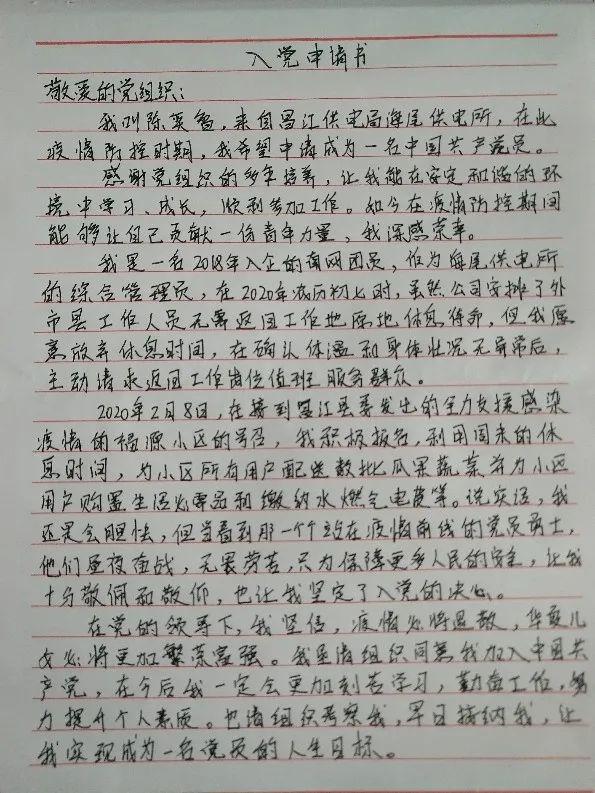 入党申请书
敬爱的党组织：
我叫陈奕鲁，来自昌江供电局海尾供电所，在此
疫情防控时期，我希望申请成为一名中国共产党员。
感谢党组织的多年培养，让我能在安定和谐的环
境中学习、成长，顺利参加工作。如今在疫情防控期间
能够让自己贡献一份青年力量，我深感荣幸。
我是一名2018年入企的南网团员，作为海尾供电所
的综合管理员，在2020年农历初七时，虽然公司安排了外
市县工作人员无需返回工作地原地休息待命，但我愿
意放弃休息时间，在确认体温和身体状况无异常后，
主动请求返回工作岗位值班服务群众。
2020年2月8日，在接到昌江县委发出的全力支援感染
疫情的福源小区的号召，我积极报名，利用周末的休
息时间，为小区所有用户配送数批瓜果蔬菜并为小区
用户购置生活必需品和缴纳水燃气电费等。说实话，我
还是会胆怯，但当看到那一个个站在疫情前线的党员勇士，
他们昼夜奋战，无畏劳苦，只为保障更多人民的安全，让我
十分敬佩和敬仰，也让我坚定了入党的决心。
在党的领导下，我坚信，疫情必将退散，华夏儿
女必将更加繁荣富强。我恳请组织同意我加入中国共
产党，在今后我一定会更加刻苦学习，勤奋工作，努
力提升个人素质。也请组织考察我，早日接纳我，让
我实现成为一名党员的人生目标。